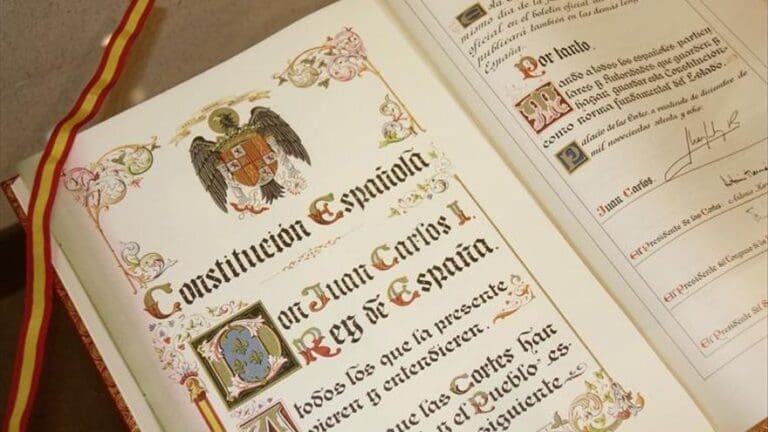 Constitución Española
Don Juan Carlos I.
Rey de España.
A todos los que la presente
vieren y entendieren.
que las Cortes han
y el Pueblo es-
siguiente
mismo día de la
oficial en el boletín oficial
publicará también en las demás
España.
Por tanto.
Mando a todos los españoles particu-
lares y Autoridades que guarden y
hagan guardar esta Constitución
como norma fundamental del Estado.
Palacio de las Cortes, a veintisiete de diciembre de
mil novecientos setenta y ocho.
Juan Carlos.
El Presidente de las Cortes.
El Presidente del Congreso de los
El Presidente del